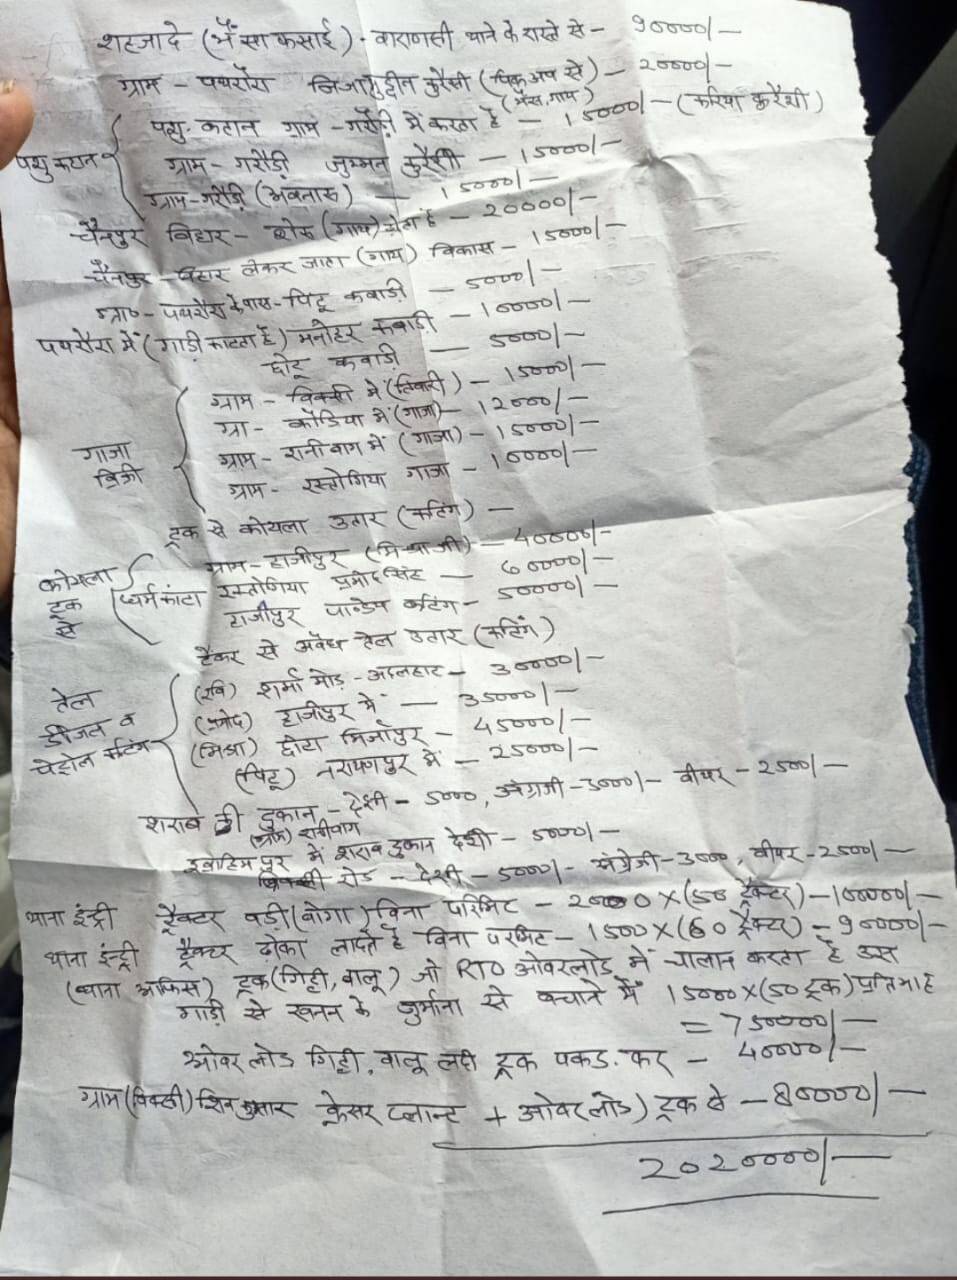 शहजादे (भैंसा कसाई) - वाराणसी थाने के रास्ते से - 90000/-
ग्राम - पथरौरा निजामुद्दीन कुरैशी (पिकअप से) - 20000/-
(भैंस, गाय)
पशु कटान
पशु-कटान ग्राम - गरौड़ी में करता है - 15000/- (करिया कुरैशी)
ग्राम - गरौड़ी जुम्मन कुरैशी - 15000/-
ग्राम - गरौड़ी - 15000/-
चैनपुर बिहार - शेरू (गाय) - 20000/-
चैनपुर - बिहार लेकर जाता (गाय) विकास - 15000/-
ग्रा० - पथरौरा के पास - पिंटू कबाड़ी - 5000/-
पथरौरा में (गाड़ी काटता है) मनोहर कबाड़ी - 10000/-
छोटू कबाड़ी - 5000/-
गाजा बिक्री
ग्राम - में (तिवारी) - 15000/-
ग्रा - कोंडिया में (गाजा) - 12000/-
ग्राम - रानीबाग में (गाजा) - 15000/-
ग्राम - रस्तोगिया गाजा - 10000/-
ट्रक से कोयला उतार (कटिंग) -
कोयला ट्रक से
ग्राम - हाजीपुर (मिश्राजी) - 40000/-
धर्मकांटा रस्तोगिया प्रमोद सिंह - 60000/-
हाजीपुर पान्डेय कटिंग - 50000/-
टैंकर से अवैध तेल उतार (कटिंग)
तेल डीजल व पेट्रोल कटिंग
(रवि) शर्मा मोड़ - अदलहाट - 30000/-
(प्रमोद) हाजीपुर में - 35000/-
(मिश्रा) छोटा मिर्जापुर - 45000/-
(पिंटू) नरायनपुर में - 25000/-
शराब की दुकान - देशी - 5000, अंग्रेजी - 3000/- बीयर - 2500/-
(ग्राम) रानीबाग
इब्राहिमपुर में शराब दुकान देशी - 5000/-
रोड - देशी - 5000/- अंग्रेजी - 3000, बीयर - 2500/-
थाना इंट्री ट्रैक्टर बड़ी (बोगा) बिना परमिट - 2000 × (50 ट्रैक्टर) - 100000/-
थाना इंन्ट्री ट्रैक्टर ढोका लादते है बिना परमिट - 1500 × (60 ट्रैक्टर) = 90000/-
(थाना आफिस) ट्रक (गिट्टी, बालू) जो RTO ओवरलोड में चालान करता है उस
गाड़ी से खनन के जुर्माना से बचाने में 15000 × (50 ट्रक) प्रतिमाह
= 750000/-
ओवर लोड गिट्टी, बालू लदी ट्रक पकड़ कर - 40000/-
ग्राम क्रेसर प्लान्ट + ओवर लोड) ट्रक से - 80000/-
2020000/-